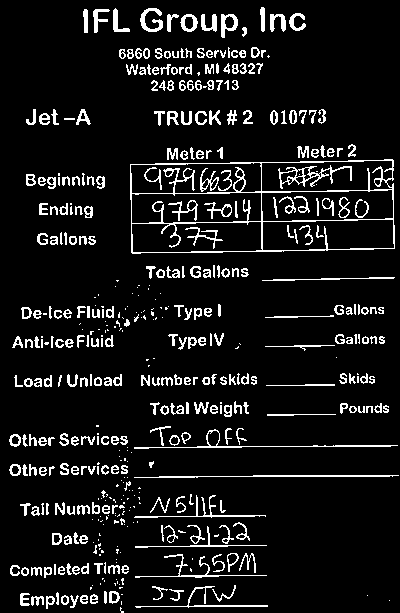 IFL Group, Inc
6860 South Service Dr.
Waterford , MI 48327
248 666-9713
Jet –A TRUCK # 2 010773
Meter 1 Meter 2
Beginning 9796638
Ending 9797014 1221980
Gallons 377 434
Total Gallons
De-Ice Fluid Type I Gallons
Anti-Ice Fluid Type IV Gallons
Load / Unload Number of skids Skids
Total Weight Pounds
Other Services TOP OFF
Other Services
Tail Number N541FL
Date 12-21-22
Completed Time 7:55PM
Employee ID JJ/TW